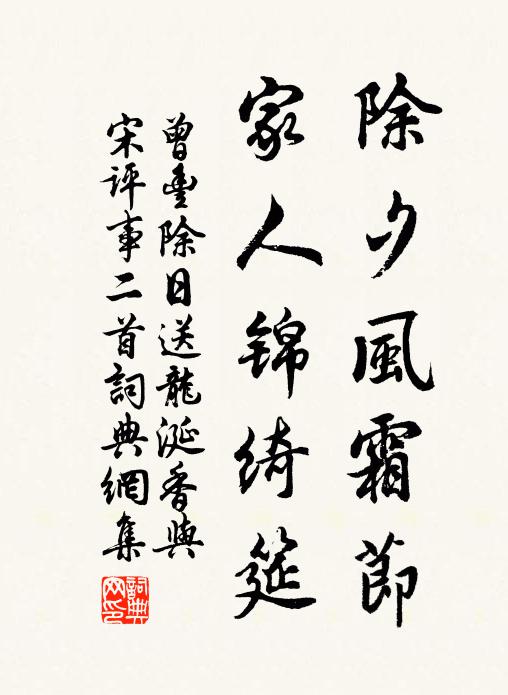 除夕風霜節
家人錦綺筵
曾豐除日送龍涎香與
宋評事二首詞典網集
詞典網印